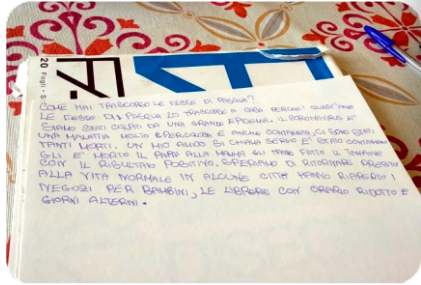 20 Fogli
COME HAI TRASCORSO LE FESTE DI PASQUA?
LE FESTE DI PASQUA LO TRASCORSO A CASA PERCHÉ QUEST'ANNO
SIAMO STATI COLPITI DA UNA GRANDE EPIDEMIA. IL CORONAVIRUS È
UNA MALATTIA MOLTO PERICOLOSA E ANCHE CONTAGIOSA, CI SONO STATI
TANTI MORTI. UN MIO AMICO SI CHIAMA SERGIO È STATO CONTAGIATO
GLI È MORTO IL PAPÀ ALLA MAMMA GLI HANNO FATTO IL TAMPONE
CON IL RISULTATO POSITIVO. SPERIAMO DI RITORNARE PRESTO
ALLA VITA NORMALE IN ALCUNE CITTÀ HANNO RIAPERTO I
NEGOZI PER BAMBINI, LE LIBRERIE CON ORARIO RIDOTTO E
GIORNI ALTERNI.